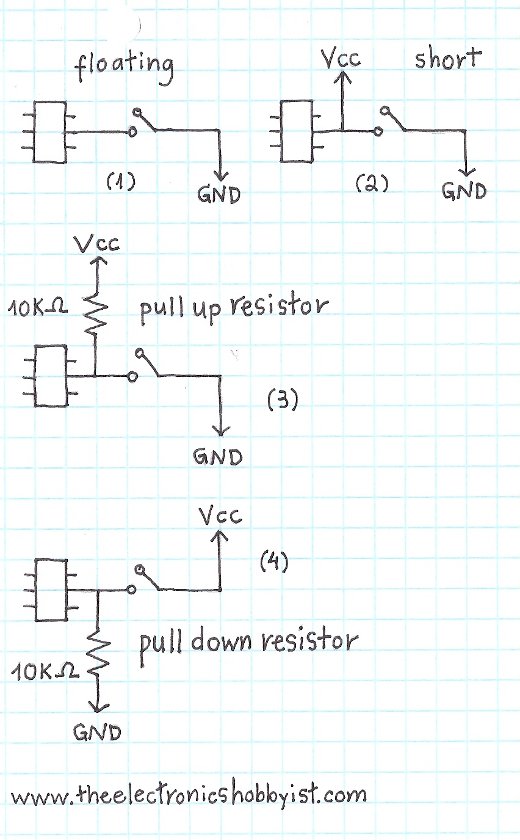 floating
(1)
GND
Vcc
short
(2)
GND
Vcc
10KΩ
pull up resistor
(3)
GND
Vcc
(4)
pull down resistor
10KΩ
GND
www.theelectronicshobbyist.com